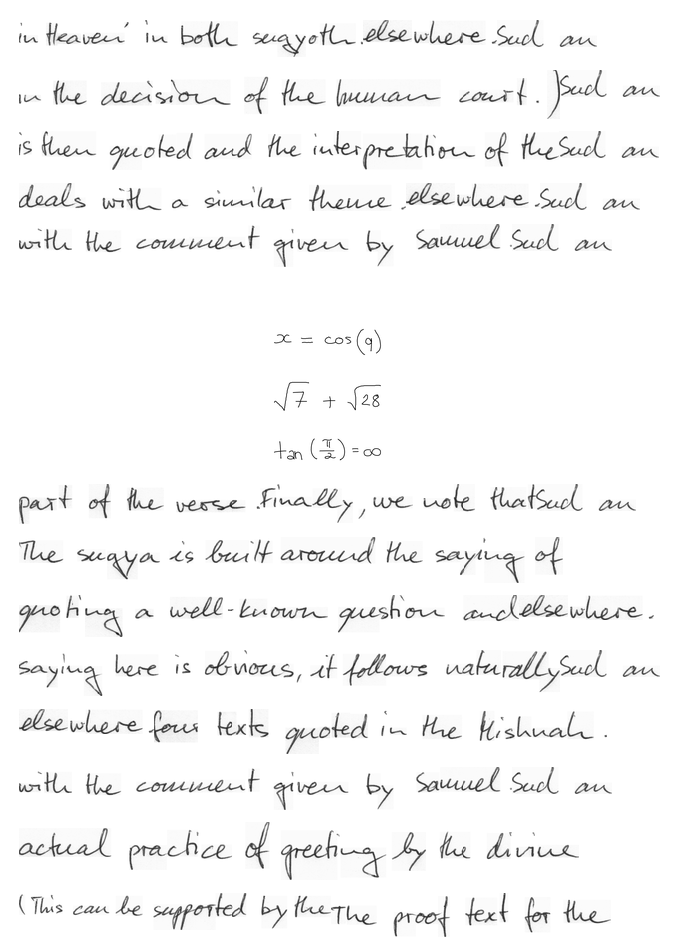 in Heaven' in both sugyoth.elsewhere.Sud an
in the decision of the human court.)Sud an
is then quoted and the interpretation of theSud an
deals with a similar theme.elsewhere.Sud an
with the comment given by Samuel.Sud an
x = cos(9)
√7 + √28
tan(π/2) = ∞
part of the verse.Finally, we note thatSud an
The sugya is built around the saying of
quoting a well-known question andelsewhere.
saying here is obvious, it follows naturallySud an
elsewhere four texts quoted in the Mishnah.
with the comment given by Samuel.Sud an
actual practice of greeting by the divine
(This can be supported by theThe proof text for the